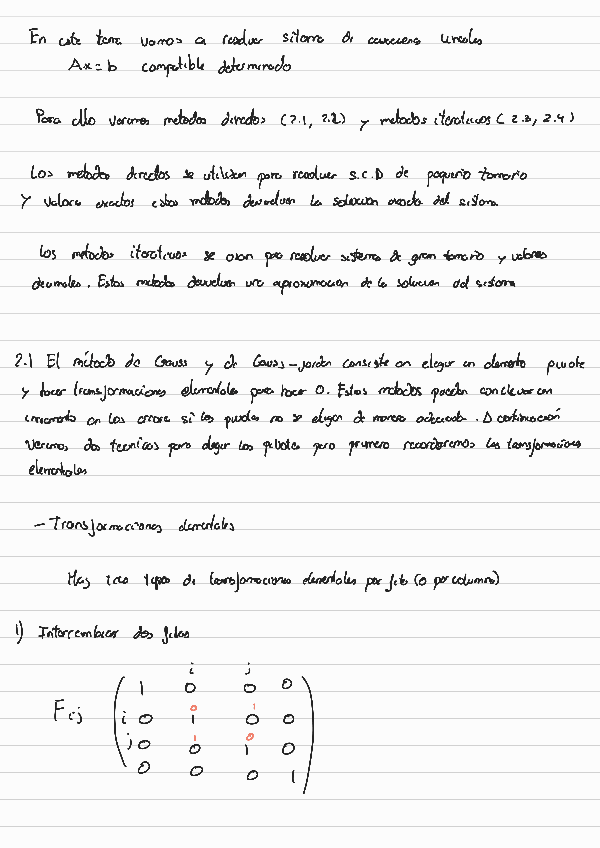 En este tema vamos a resolver sistema de ecuaciones lineales
Ax = b compatible determinado
Para ello veremos metodos directos (2.1, 2.2) y metodos iterativos (2.3, 2.4)
Los metodos directos se utilizan para resolver S.C.D de pequeño tamaño
Y valores exactos estos metodos devuelven la solucion exacta del sistema
Los metodos iterativos se usan para resolver sistema de gran tamaño y valores
decimales. Estos metodos devuelven una aproximacion de la solucion del sistema
2.1 El método de Gauss y de Gauss-jordan consiste en elegir un elemento pivote
y hacer transformaciones elementales para hacer 0. Estos metodos pueden conllevar un
incremento en los errores si los pivotes no se eligen de manera adecuada. A continuación
veremos dos tecnicas para elegir los pivotes pero primero recordaremos las transformaciones
elementales
- Transformaciones elementales
Hay tres tipos de transformaciones elementales por fila (o por columna)
1) Intercambiar dos filas
i j
1 0 0 0
0 1
Fij i 0 1 0 0
1 0
j 0 0 1 0
0 0 0 1